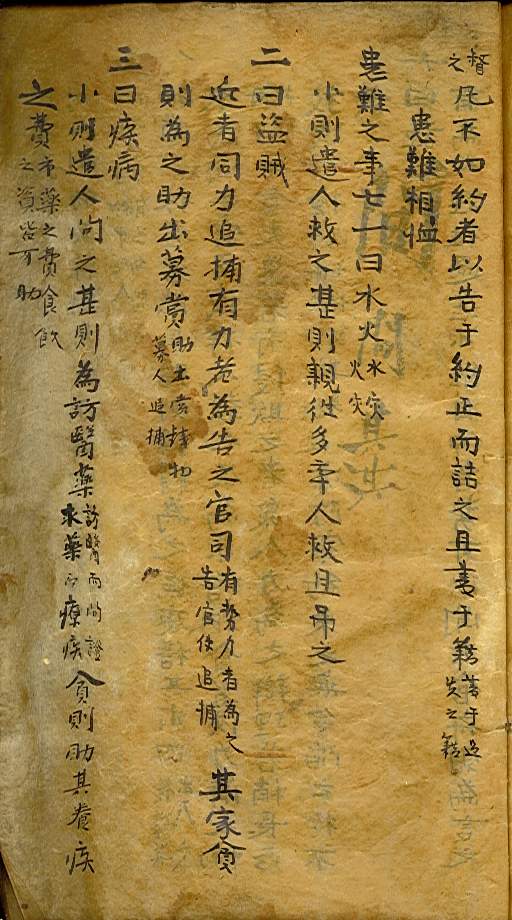 督之凡不如約者以告于約正而詰之且書于籍書于過失之籍
患難相恤
患難之事七一曰水火水灾火灾
小則遣人救之甚則親徃多率人救且吊之
二曰盜賊
近者同力追捕有力者為告之官司有勢力者為之告官使追捕其家貧
則為之助出募賞助出賞錢物募人追捕
三曰疾病
小則遣人問之甚則為訪醫藥訪醫而問證求藥而療疾貧則助其養疾
之費市藥之費食飮之資皆可助